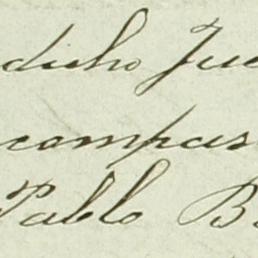 dicho Jue
compar
Pablo B